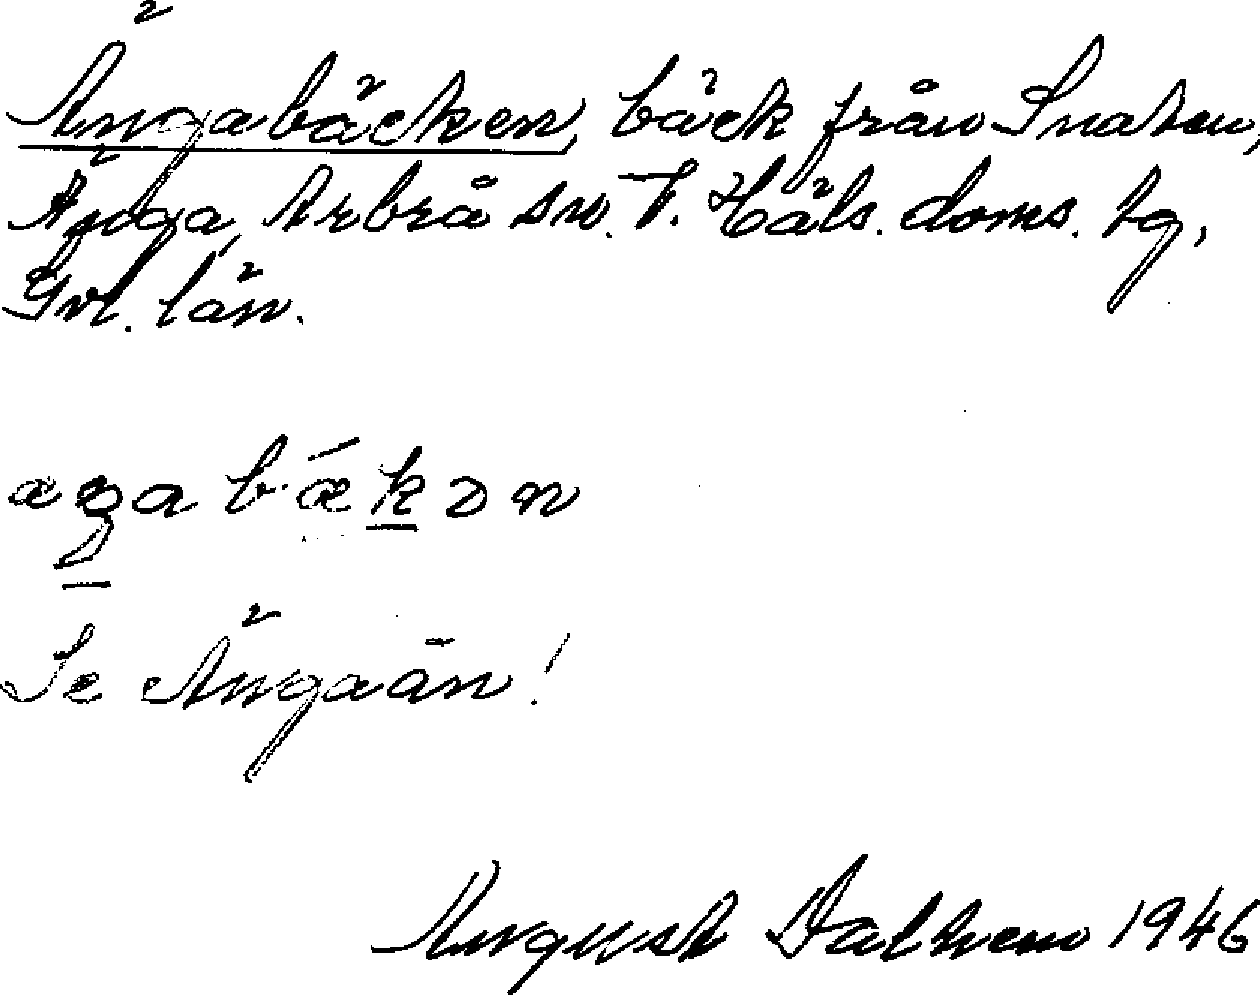 Ängabäcken, bäck från Snaten,
Änga, Arbrå sn. V. Häls. doms. tg,
Gvl. län.
æŋabǽkən
Se Ängaån!
August Dalhem 1946